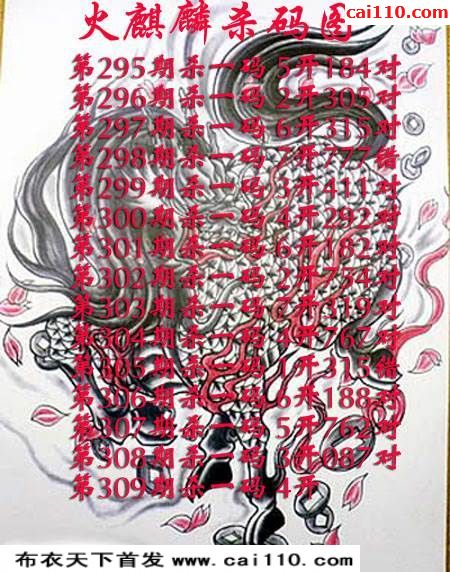 cai110.com
火麒麟杀码图
第295期杀一码5开184对
第296期杀一码2开305对
第297期杀一码6开315对
第298期杀一码7开777错
第299期杀一码3开411对
第300期杀一码4开292对
第301期杀一码6开182对
第302期杀一码2开754对
第303期杀一码 开319对
第304期杀一码4开767对
第305期杀一码1开315错
第306期杀一码6开188对
第307期杀一码5开762对
第308期杀一码3开087对
第309期杀一码4开
布衣天下首发 www.cai110.com